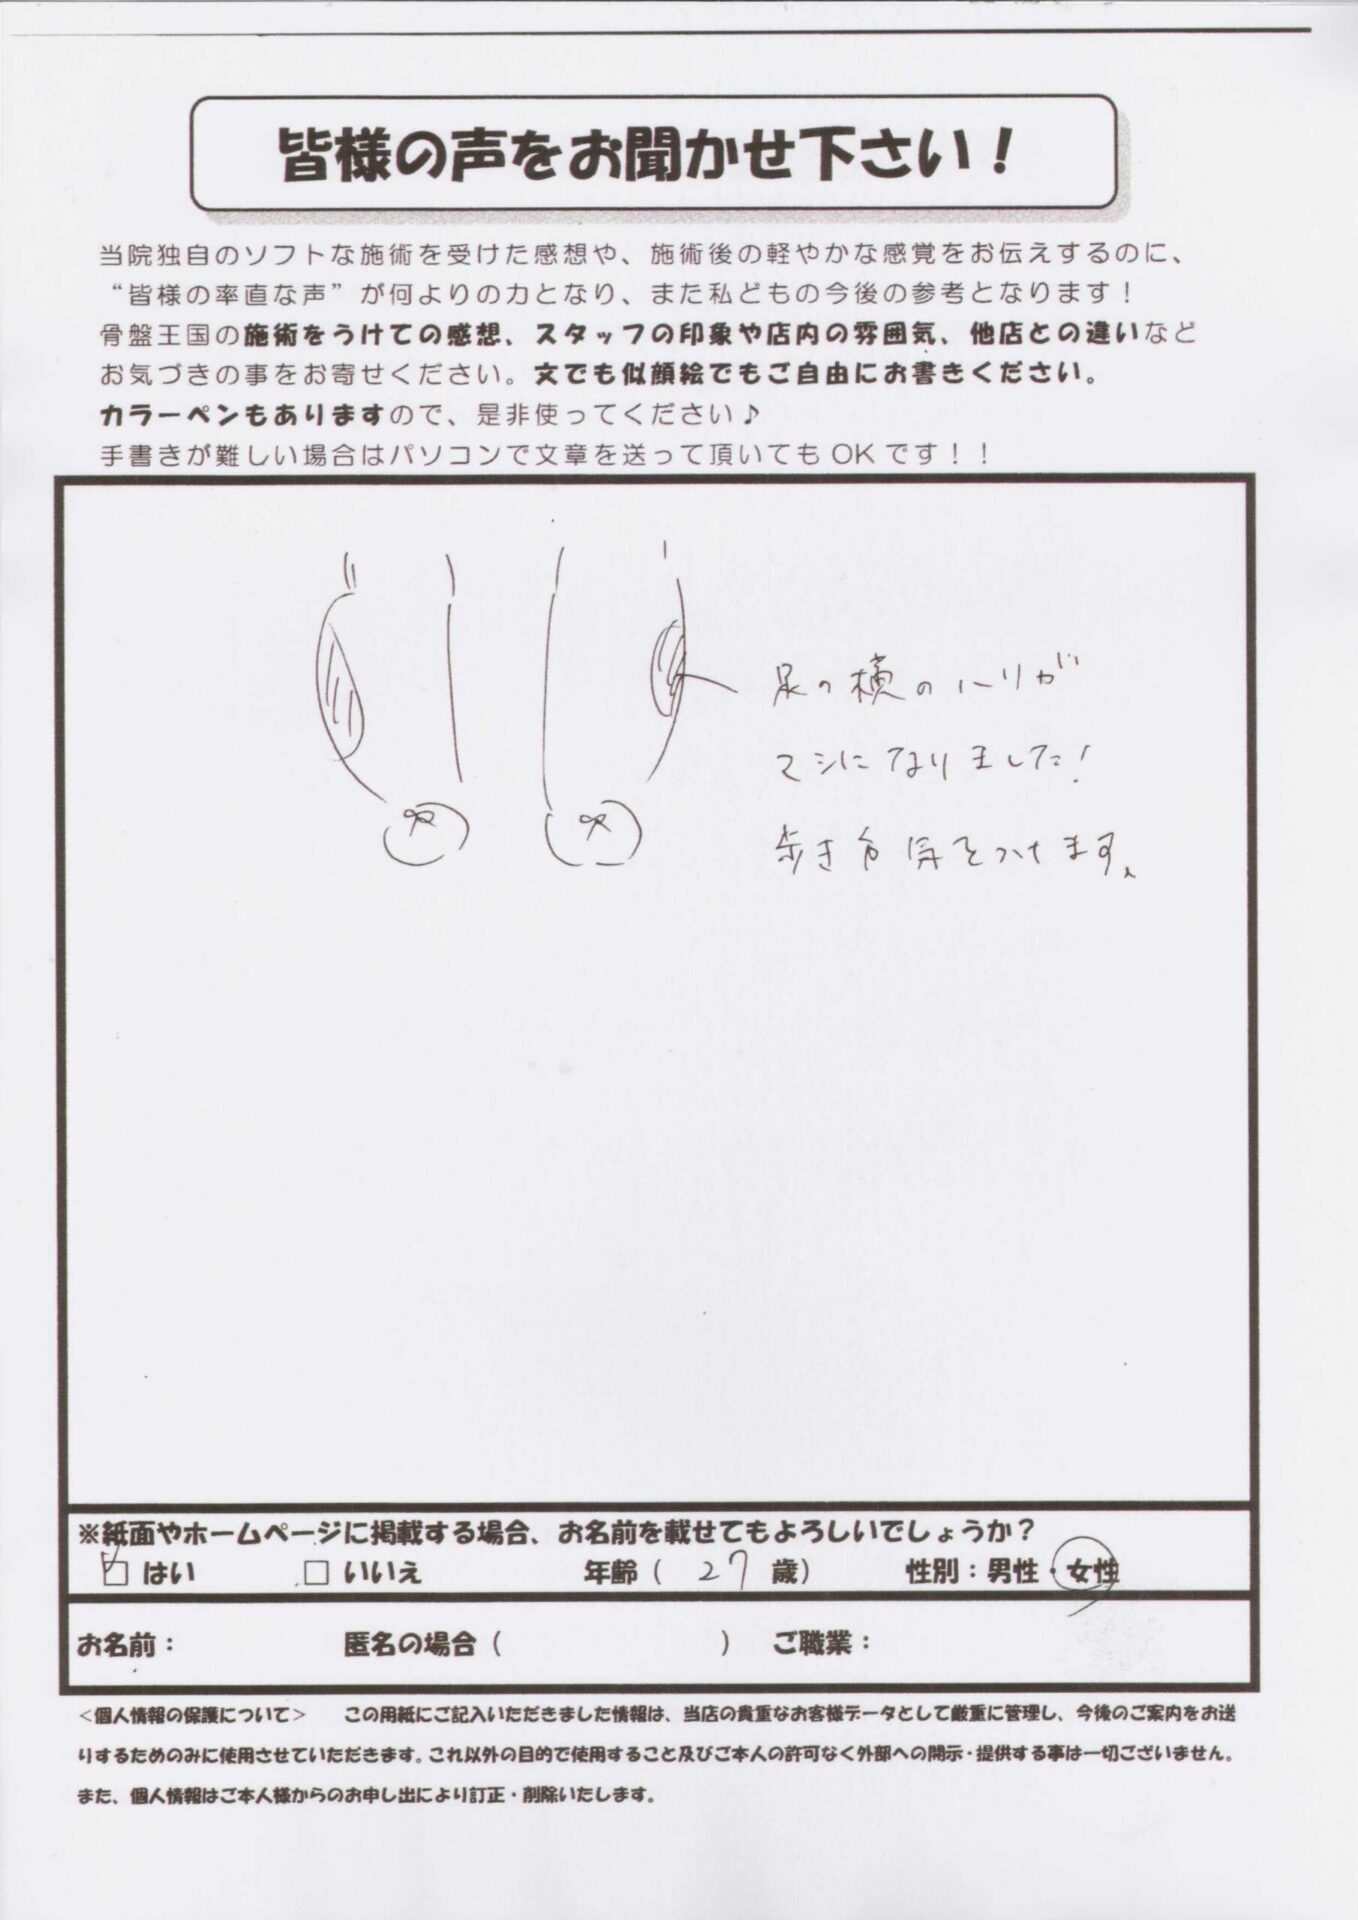 皆様の声をお聞かせ下さい！
当院独自のソフトな施術を受けた感想や、施術後の軽やかな感覚をお伝えするのに、
“皆様の率直な声”が何よりの力となり、また私どもの今後の参考となります！
骨盤王国の施術をうけての感想、スタッフの印象や店内の雰囲気、他店との違いなど
お気づきの事をお寄せください。文でも似顔絵でもご自由にお書きください。
カラーペンもありますので、是非使ってください♪
手書きが難しい場合はパソコンで文章を送って頂いてもOKです！！
足の横のハリが
マシになりました！
歩き方気をつけます。
※紙面やホームページに掲載する場合、お名前を載せてもよろしいでしょうか？
☑はい □いいえ 年齢（27歳） 性別：男性・女性
お名前： 匿名の場合（ ） ご職業：
＜個人情報の保護について＞ この用紙にご記入いただきました情報は、当店の貴重なお客様データとして厳重に管理し、今後のご案内をお送
りするためのみに使用させていただきます。これ以外の目的で使用すること及びご本人の許可なく外部への開示・提供する事は一切ございません。
また、個人情報はご本人様からのお申し出により訂正・削除いたします。